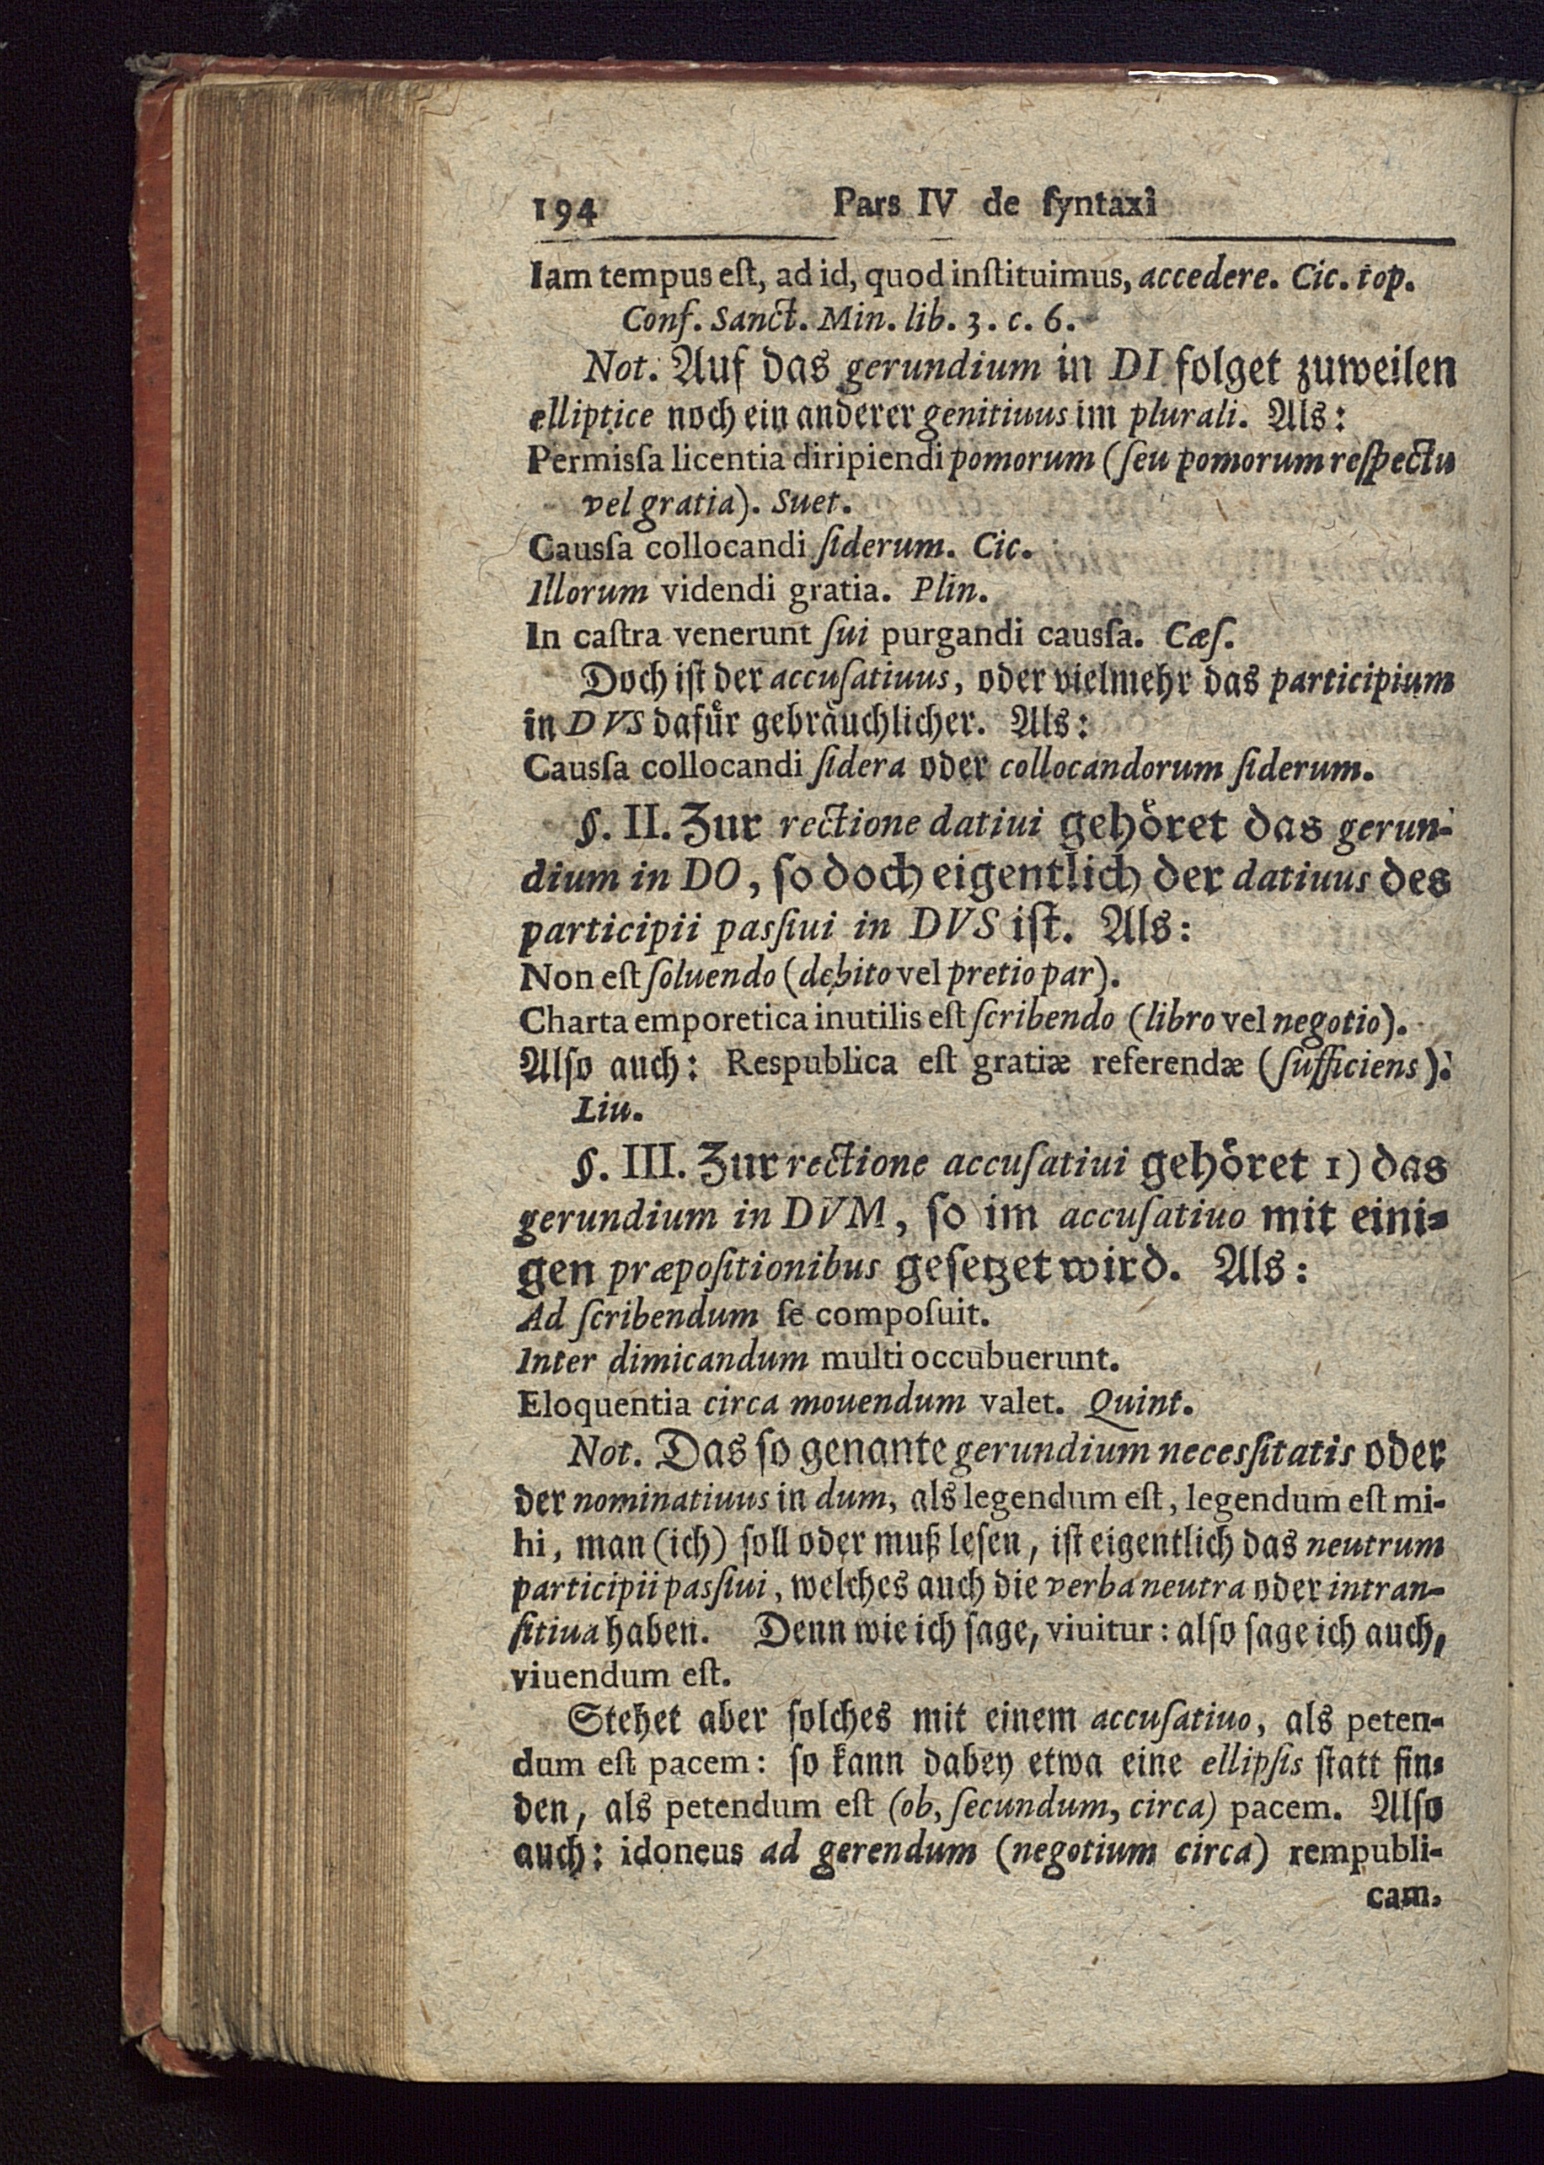 194 Pars IV de ſyntaxi
Iam tempus eſt, ad id, quod inſtituimus, accedere. Cic. top.
Conf. Sanct. Min. lib. 3. c. 6.
Not. Auf das gerundium in DI folget zuweilen
elliptice noch ein anderer genitiuus im plurali. Als:
Permisſa licentia diripiendi pomorum (ſeu pomorum reſpectu
vel gratia). Suet.
Causſa collocandi ſiderum. Cic.
Illorum videndi gratia. Plin.
In caſtra venerunt ſui purgandi causſa. Cæſ.
Doch iſt der accuſatiuus, oder vielmehr das participium
in DVS dafür gebräuchlicher. Als:
Causſa collocandi ſidera oder collocandorum ſiderum.
§. II. Zur rectione datiui gehöret das gerun-
dium in DO, ſo doch eigentlich der datiuus des
participii pasſiui in DVS iſt. Als:
Non eſt ſoluendo (debito vel pretio par).
Charta emporetica inutilis eſt ſcribendo (libro vel negotio).
Alſo auch: Respublica eſt gratiæ referendæ (ſufficiens).
Liu.
§. III. Zur rectione accuſatiui gehöret 1) das
gerundium in DVM, ſo im accuſatiuo mit eini-
gen præpoſitionibus geſetzet wird. Als:
Ad ſcribendum ſe compoſuit.
Inter dimicandum multi occubuerunt.
Eloquentia circa mouendum valet. Quint.
Not. Das ſo genante gerundium necesſitatis oder
der nominatiuus in dum, als legendum eſt, legendum eſt mi-
hi, man (ich) ſoll oder muß leſen, iſt eigentlich das neutrum
participii pasſiui, welches auch die verba neutra oder intran-
ſitiua haben. Denn wie ich ſage, viuitur: alſo ſage ich auch,
viuendum eſt.
Stehet aber ſolches mit einem accuſatiuo, als peten-
dum eſt pacem: ſo kann dabey etwa eine ellipſis ſtatt fin-
den, als petendum eſt (ob, ſecundum, circa) pacem. Alſo
auch: idoneus ad gerendum (negotium circa) rempubli-
cam.